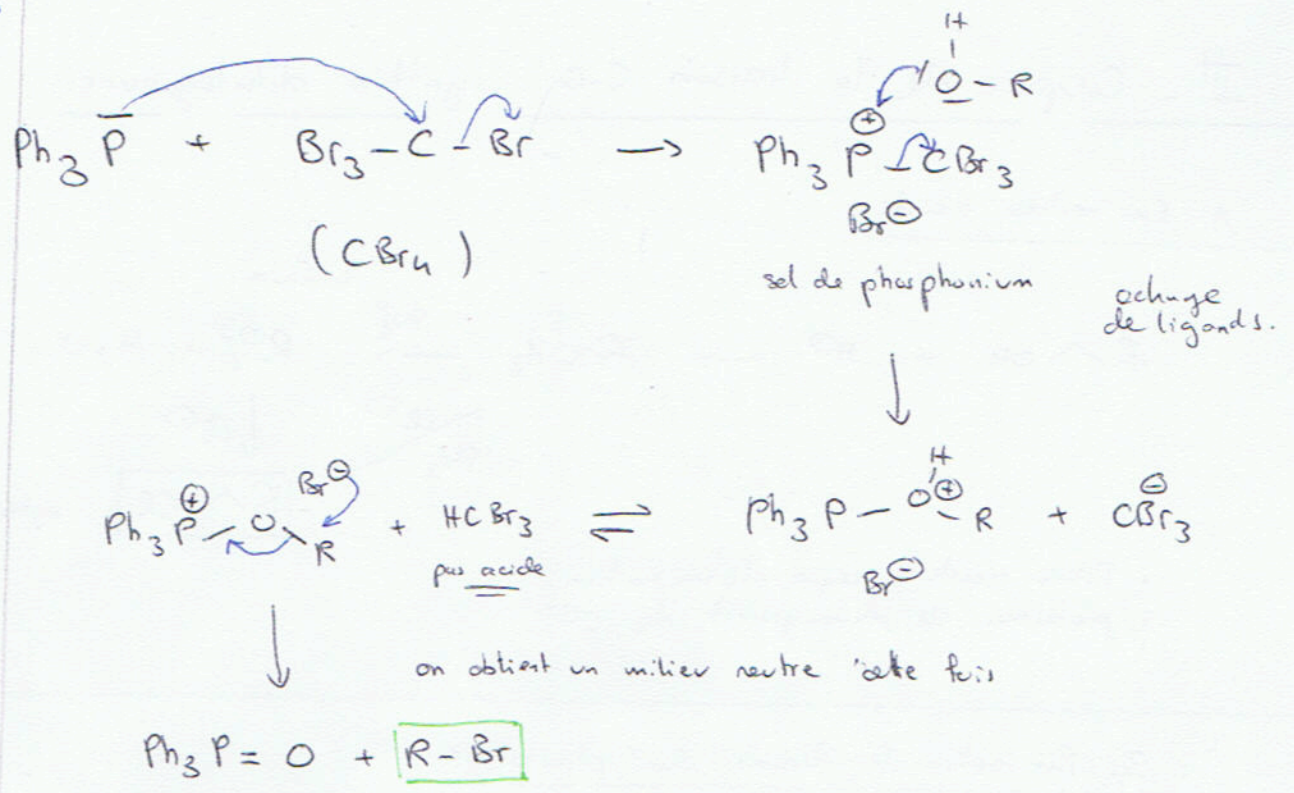 H
|O – R
Ph3 P + Br3 – C – Br → Ph3 P⊕ – CBr3
Br⊖
(CBr4)
sel de phosphonium
echange
de ligands.
H
Ph3 P⊕ – O – R Br⊖ + HCBr3 ⇌ Ph3 P – O⊕ – R + CBr3⊖
pas acide
Br⊖
on obtient un milieu neutre cette fois
Ph3 P = O + R – Br